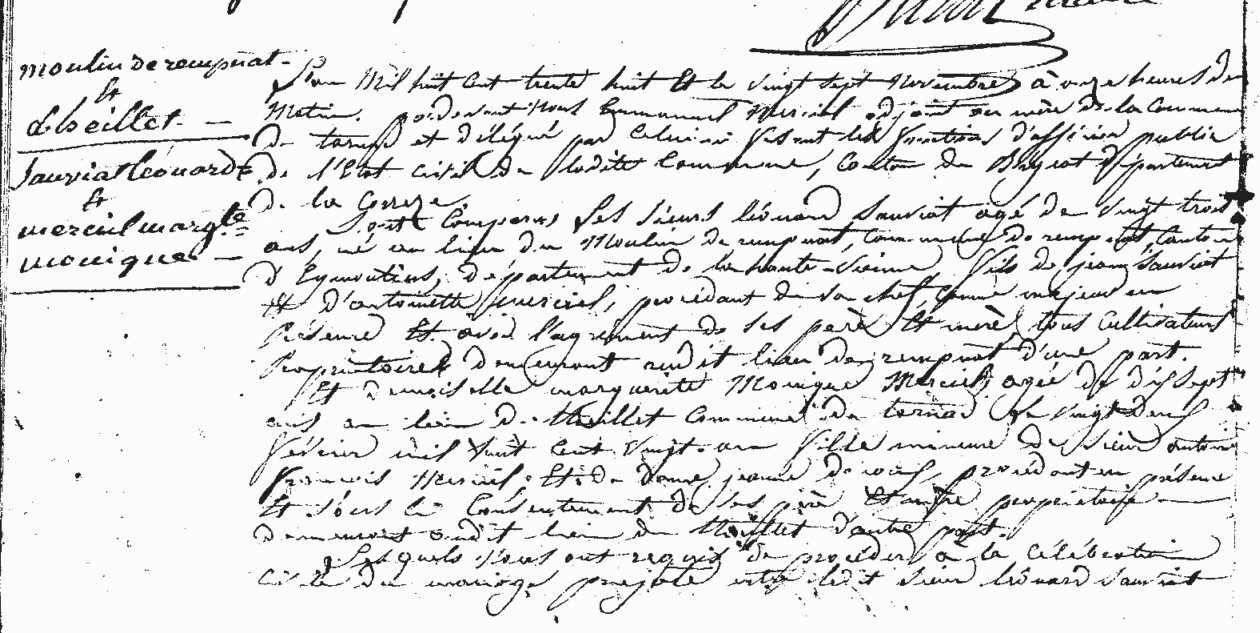 maire
moulin de rempnat
et
Lheillet
Sauviat Léonard
et
merciel margte
monique
L'an Mil huit cent trente huit Et le vingt sept Novembre à onze heures du
Matin. pardevant Nous Emmanuel Merciel adjoint au mère de la Commune
de tarnac et délégué par Celui-ci fesant les fonctions d'officier public
de l'Etat civil de ladite Commune, Canton de Bugeat département
de la Correze.
Sont Comparus Les sieurs léonard Sauviat agé de vingt trois
ans, né au lieu du Moulin de rempnat, Commune de rempnat, Canton
d'Eymoutiers, département de la haute-vienne, fils de jean Sauviat
Et d'antoinette merciel, procédant de son chef, comme majeur en
présence Et avec l'agrément de ses père Et mère, tous Cultivateurs
propriétaires demeurant audit lieu de rempnat d'une part.
Et demoiselle marguerite Monique Merciel, agée de dix sept
ans au lieu de Commune de tarnac le vingt deux
Février mil huit Cent vingt-un fille mineure de sieur antoine
François Merciel Et de Dame jeanne procédant en présence
Et sous le Consentement de ses père Et mère propriétaire
demeurant audit lieu de d'autre part.
Lesquels Nous ont requis de procéder à la Célébration
civile du mariage projeté entre ledit sieur léonard Sauviat